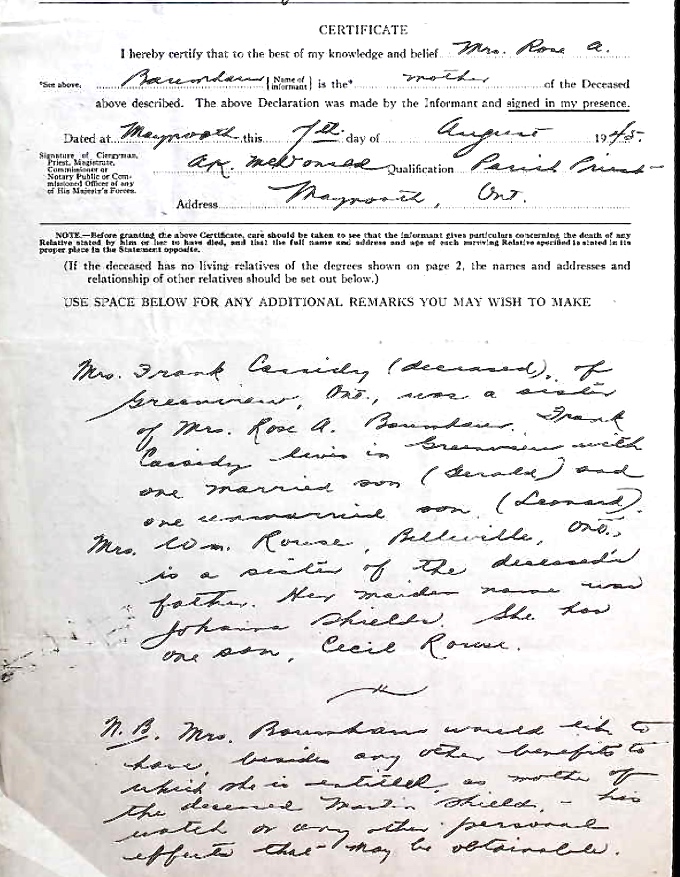 CERTIFICATE
I hereby certify that to the best of my knowledge and belief Mrs. Rose A.
*See above. Baumhaur {Name of informant} is the* mother of the Deceased
above described. The above Declaration was made by the Informant and signed in my presence.
Dated at Maynooth this 7th day of August 1945.
Signature of Clergyman,
Priest, Magistrate,
Commissioner or
Notary Public or Com-
missioned Officer of any
of His Majesty's Forces.
A.K. McDonald Qualification Parish Priest
Address Maynooth, Ont.
NOTE.—Before granting the above Certificate, care should be taken to see that the informant gives particulars concerning the death of any
Relative stated by him or her to have died, and that the full name and address and age of each surviving Relative specified is stated in its
proper place in the Statement opposite.
(If the deceased has no living relatives of the degrees shown on page 2, the names and addresses and
relationship of other relatives should be set out below.)
USE SPACE BELOW FOR ANY ADDITIONAL REMARKS YOU MAY WISH TO MAKE
Mrs. Frank Cassidy (deceased), of
Greenview, Ont., was a sister
of Mrs. Rose A. Baumhaur. Frank
Cassidy lives in Greenview with
one married son (Gerald) and
one unmarried son. (Leonard).
Mrs. Wm. Rouse, Belleville, Ont.,
is a sister of the deceased's
father. Her maiden name was
Johanna Shields. She has
one son, Cecil Rouse.
N.B. Mrs. Baumhaur would like to
have, besides any other benefits to
which she is entitled, as mother of
the deceased Martin Shields, - his
watch or any other personal
effects that may be obtainable.